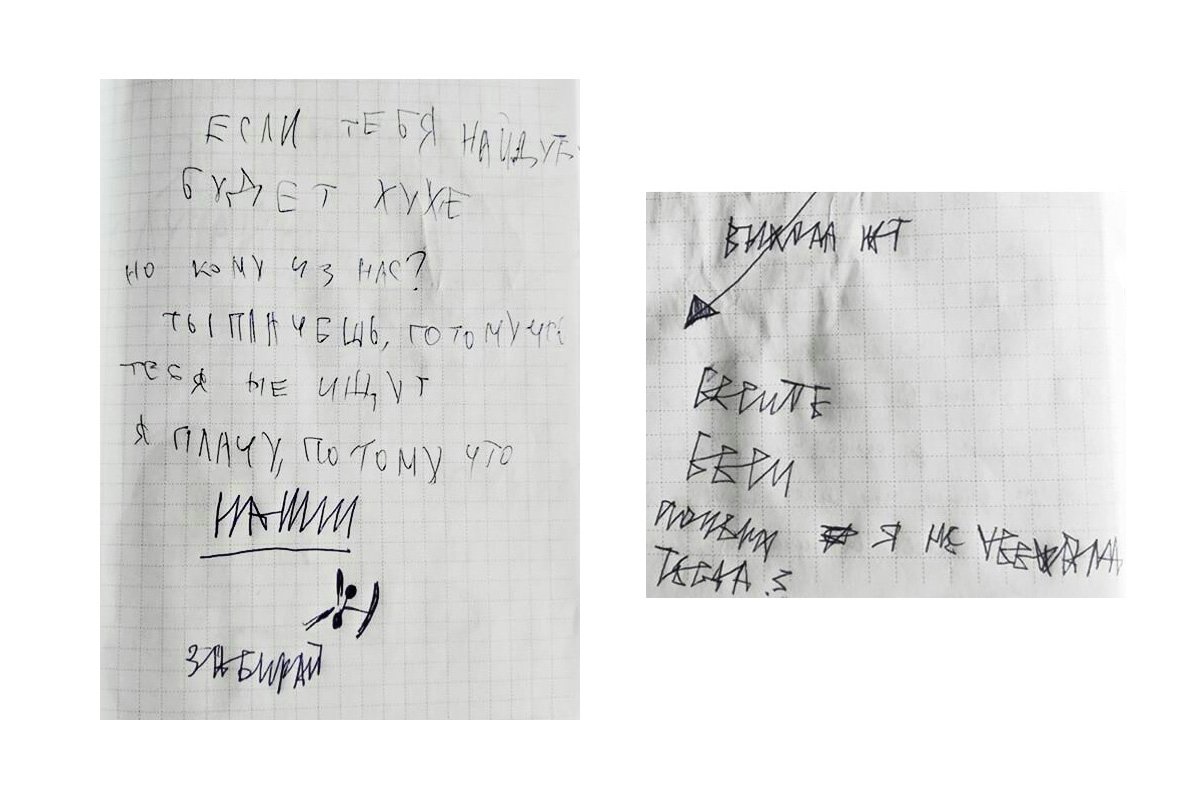 ЕСЛИ ТЕБЯ НАЙДУТ
БУДЕТ ХУХЕ
НО КОМУ ИЗ НАС?
ТЫ ПЛАЧЕШЬ, ПОТОМУ ЧТО
ТЕБЯ НЕ ИЩУТ
Я ПЛАЧУ, ПОТОМУ ЧТО
НАШЛИ
ЗАБИРАЙ
ВЫХОДА НЕТ
БЕРИТЕ
БЕРИ
Я НЕ